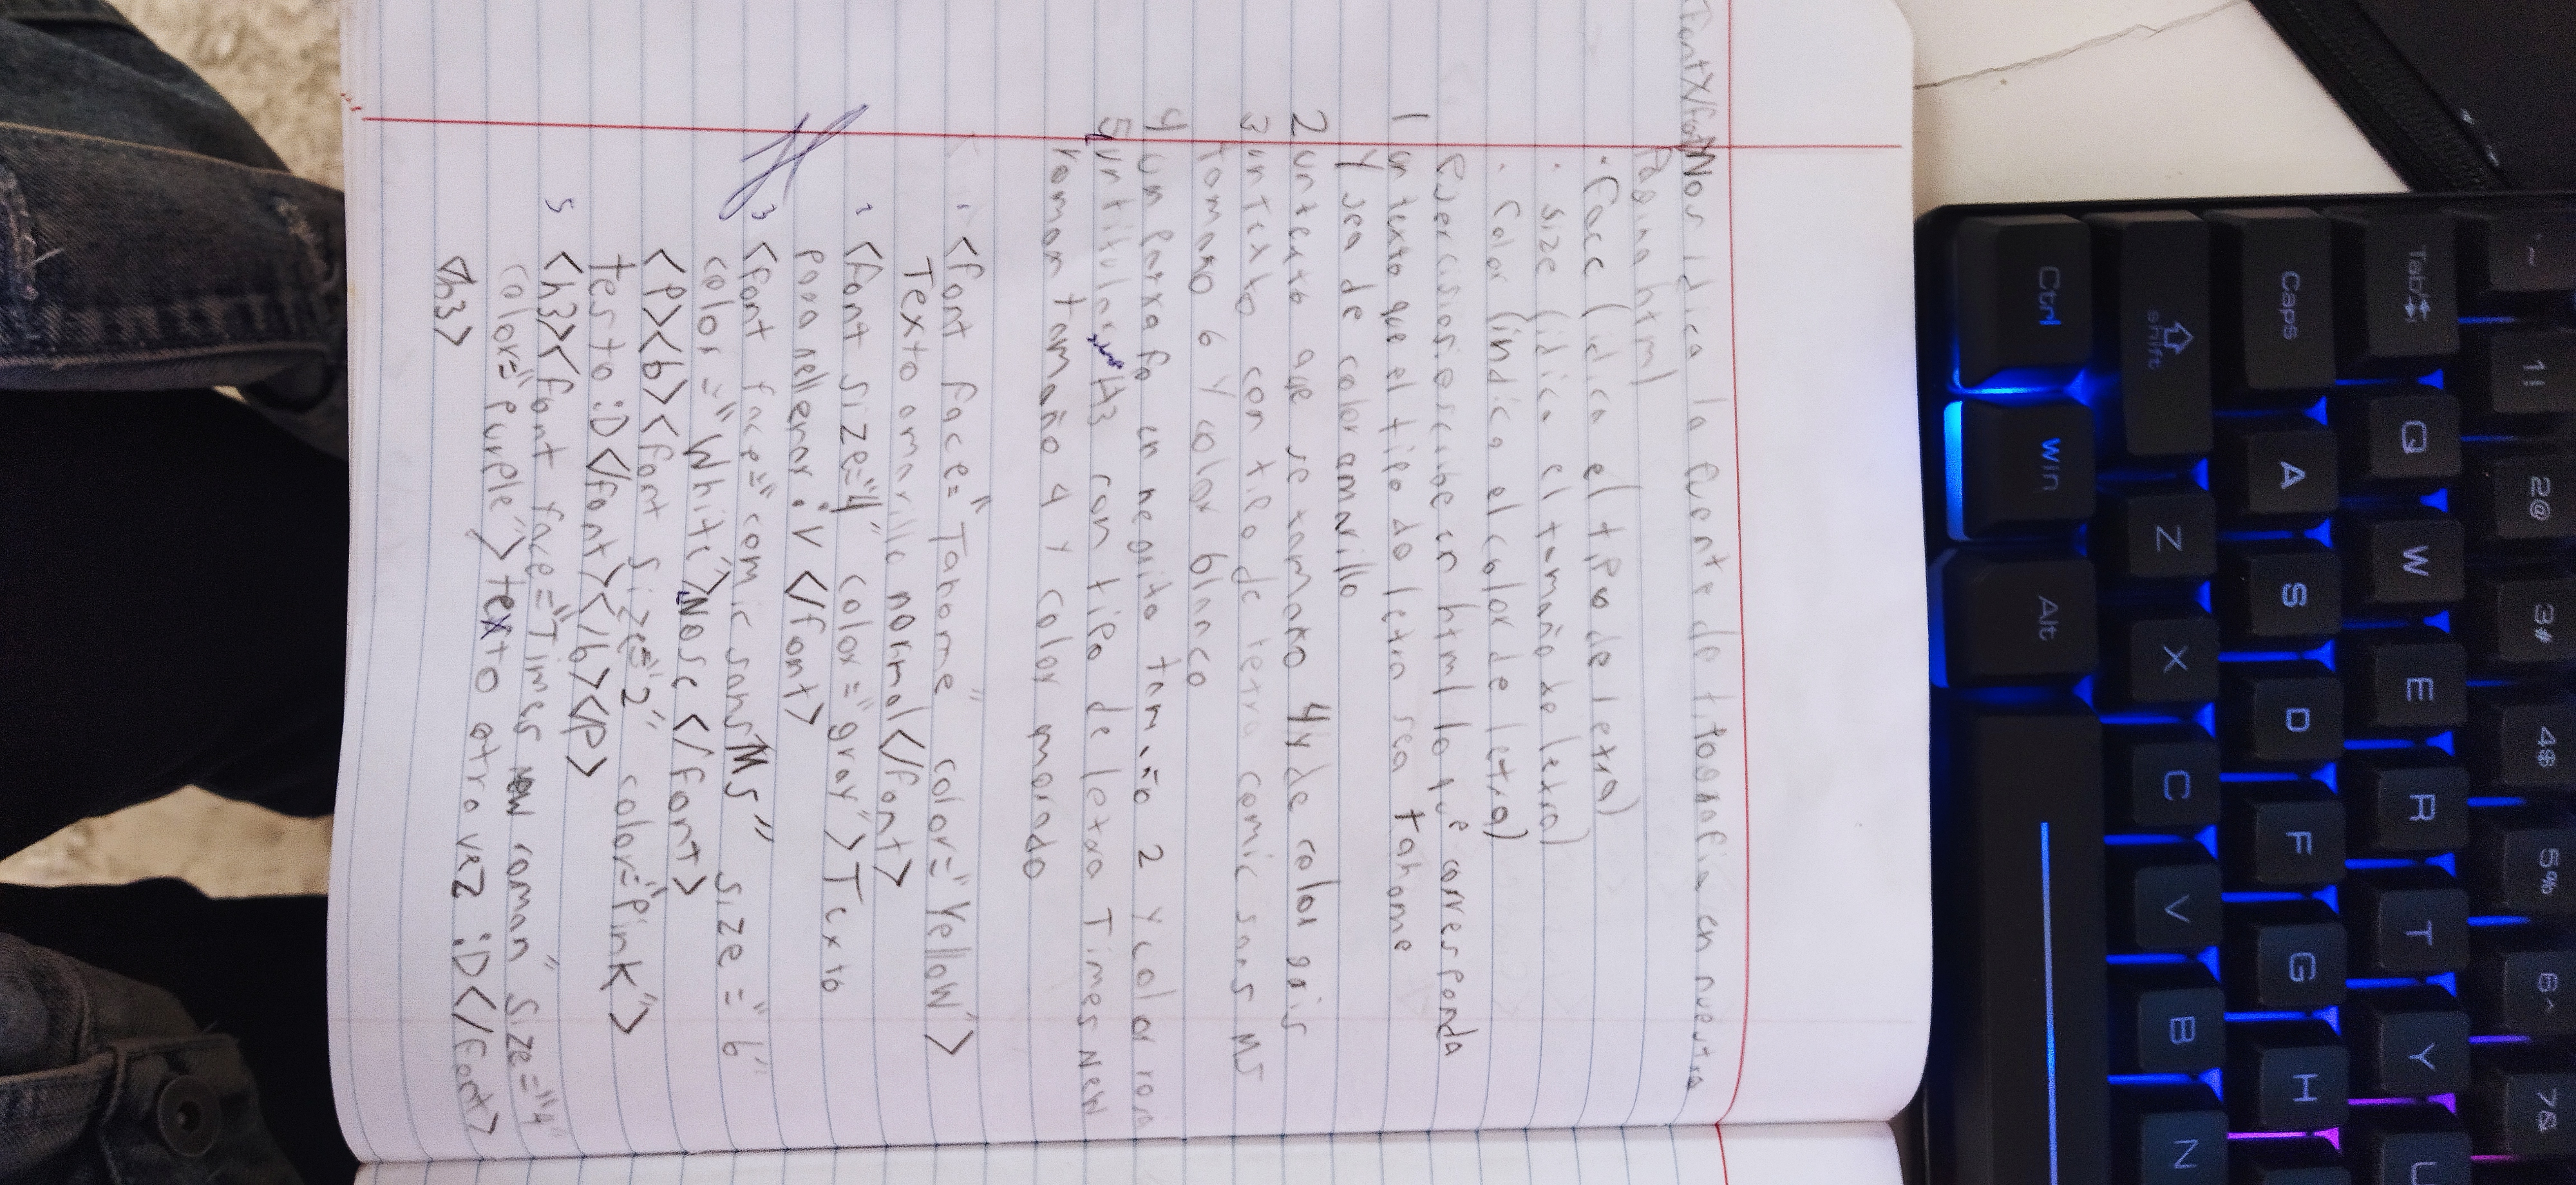 <font></font> Nos idica la fuente de titpografia en nuestra
Pagina html
· Face (idica el tipo de letra)
· size (idica el tamaño de letra)
· Color (indica el color de letra)
esercisiosiescribe en html lo que corresponda
1 un texto que el tipo do letra sea tahome
y sea de color amarillo
2 un texto que se tamaño 4 y de color gris
3 un texto con tipo de letra comic sans MS
Tamaño 6 y color blanco
4 un parrafo en negrito tamaño 2 y color rosa
5 un titular H3 con tipo de letra Times New
roman tamaño 4 y color morado
1 <font face="Tahome" color="Yellow">
Texto amarillo normal</font>
2 <font size="4" color="gray">Texto
para rellenar :V</font>
3 <font face="comic sans MS" size="6"
color="White">Nose </font>
<P><b><font size="2" color="Pink">
testo :D</font></b></P>
5 <h3><font face="Times new roman" size="4"
color="purple">texto otra vez :D</font>
<h3>
Ctrl
Win
Alt
shift
Z
X
C
V
B
N
Caps
A
S
D
F
G
H
Tab
Q
W
E
R
T
Y
U
~
1!
2@
3#
4$
5%
6^
7&